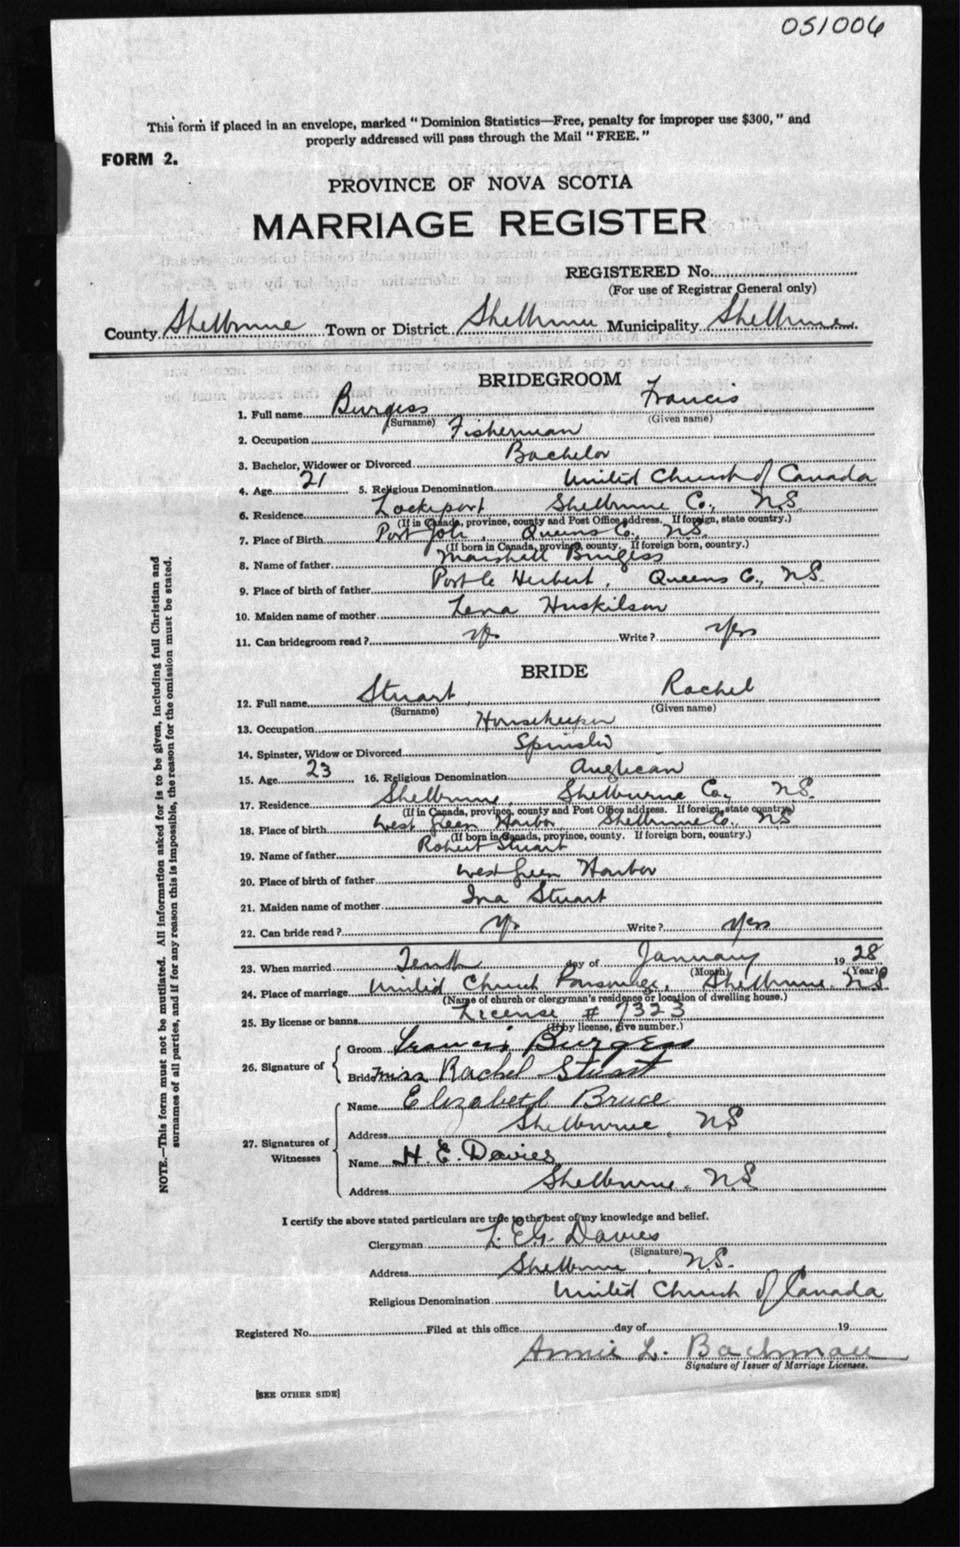 051006
This form if placed in an envelope, marked "Dominion Statistics—Free, penalty for improper use $300," and
properly addressed will pass through the Mail "FREE."
FORM 2.
PROVINCE OF NOVA SCOTIA
MARRIAGE REGISTER
REGISTERED No.
(For use of Registrar General only)
County Shelburne Town or District Shelburne Municipality Shelburne
BRIDEGROOM
1. Full name Burgess Francis
(Surname) (Given name)
2. Occupation Fisherman
3. Bachelor, Widower or Divorced Bachelor
4. Age 21 5. Religious Denomination United Church of Canada
6. Residence Lockeport Shelburne Co., N.S.
(If in Canada, province, county and Post Office address. If foreign, state country.)
7. Place of Birth Port Joli, Queens Co., N.S.
(If born in Canada, province, county. If foreign born, country.)
8. Name of father Marshall Burgess
9. Place of birth of father Port Le Herbert, Queens Co., N.S.
10. Maiden name of mother Lena Huskilson
11. Can bridegroom read? yes Write? yes
BRIDE
12. Full name Stuart, Rachel
(Surname) (Given name)
13. Occupation Housekeeper
14. Spinster, Widow or Divorced Spinster
15. Age 23 16. Religious Denomination Anglican
17. Residence Shelburne, Shelburne Co., N.S.
(If in Canada, province, county and Post Office address. If foreign, state country)
18. Place of birth West Green Harbor, Shelburne Co., N.S
(If born in Canada, province, county. If foreign born, country.)
19. Name of father Robert Stuart
20. Place of birth of father West Green Harbor
21. Maiden name of mother Ina Stuart
22. Can bride read? yes Write? yes
23. When married Tenth day of January 1928
(Month) (Year)
24. Place of marriage United Church Parsonage, Shelburne N.S
(Name of church or clergyman's residence or location of dwelling house.)
25. By license or banns License # 7323
(If by license, give number.)
26. Signature of
Groom Francis Burgess
Bride Miss Rachel Stuart
27. Signatures of Witnesses
Name Elizabeth Bruce
Address Shelburne, N.S
Name H. E. Davies
Address Shelburne, N.S.
I certify the above stated particulars are true to the best of my knowledge and belief.
Clergyman Davies
(Signature)
Address Shelburne, N.S.
Religious Denomination United Church of Canada
Registered No. Filed at this office day of 19
Annie L. Bachman
Signature of Issuer of Marriage Licenses.
[SEE OTHER SIDE]
NOTE.—This form must not be mutilated. All information asked for is to be given, including full Christian and
surnames of all parties, and if for any reason this is impossible, the reason for the omission must be stated.